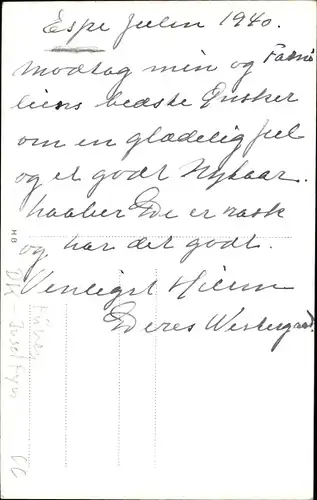 Espe Julen 1940.
Modtag min og Fami
liens bedste Ønsker
om en glædelig Jul
og et godt Nytaar.
haaber De er rask
og har det godt.
Venligst Hilsen
Deres Westergaard.
HB
Dk - Insel Fyn